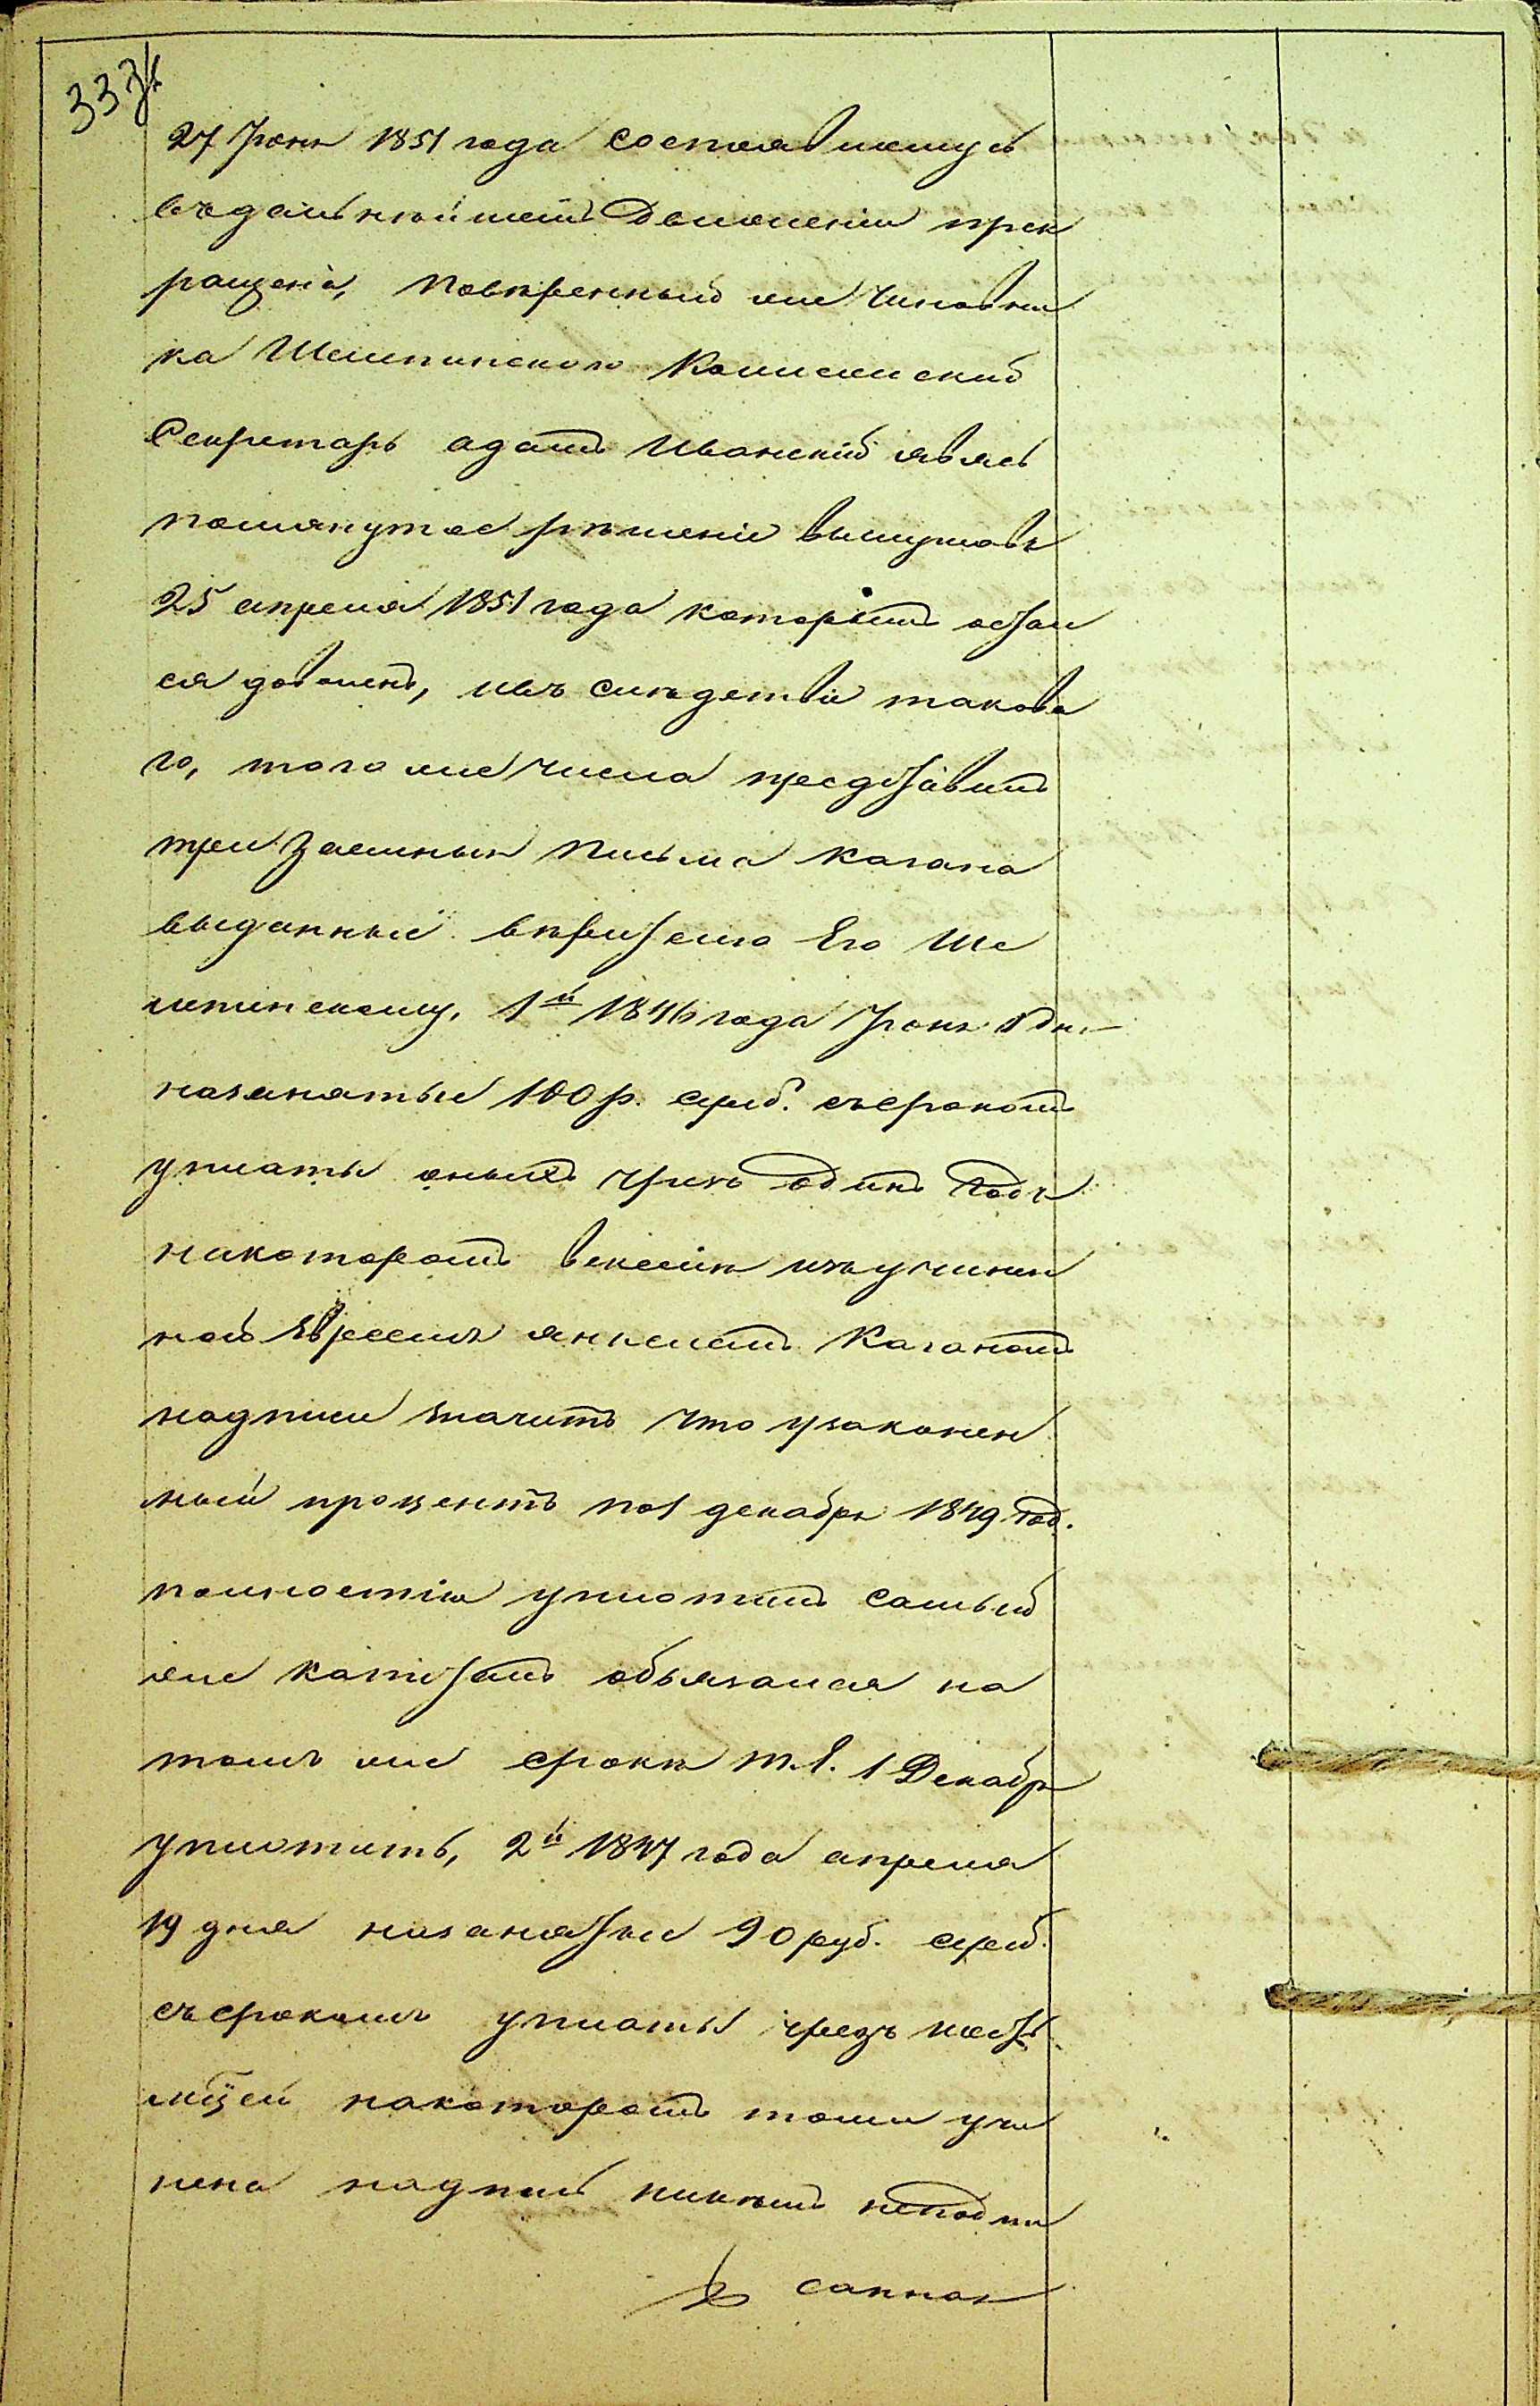 27 Іюня 1851 года состоявшемуся
въдальнѣйшемъ движеніи прек
ращено, Повѣренный же чиновни
ка Шемпинского Коллежскій
Секретарь адамъ Ивонскій явясь
помянутое рѣшеніе выслушавъ
25 апреля 1851 года которымъ остал
ся доволенъ, ивъ слѣдствіе таково
го, того же числа представилъ
три заемныя письма Кагана
выданные вѣрителю Его Ше
мпинскому, 1й 1846 года Іюня 1 дн.
назанятые 100 р. сереб. съсрокомъ
уплаты оныхъ чрезъ одинъ годъ
накоторомъ векселѣ изъучинен
ной Евреемъ янкелемъ Каганомъ
надписи значитъ что узаконен
ный процентъ по 1 декабря 1849 год.
полностію уплотилъ самый
же капиталъ обязался на
томъ же срокѣ т.е. 1 Декабря
уплотить, 2й 1847 года апреля
19 дня назанятые 90 руб. сереб.
съсрокомъ уплаты чрезъ шесть
мѣсяцей накоторомъ тоже учи
нена надпись никѣмъ неподпи
санная